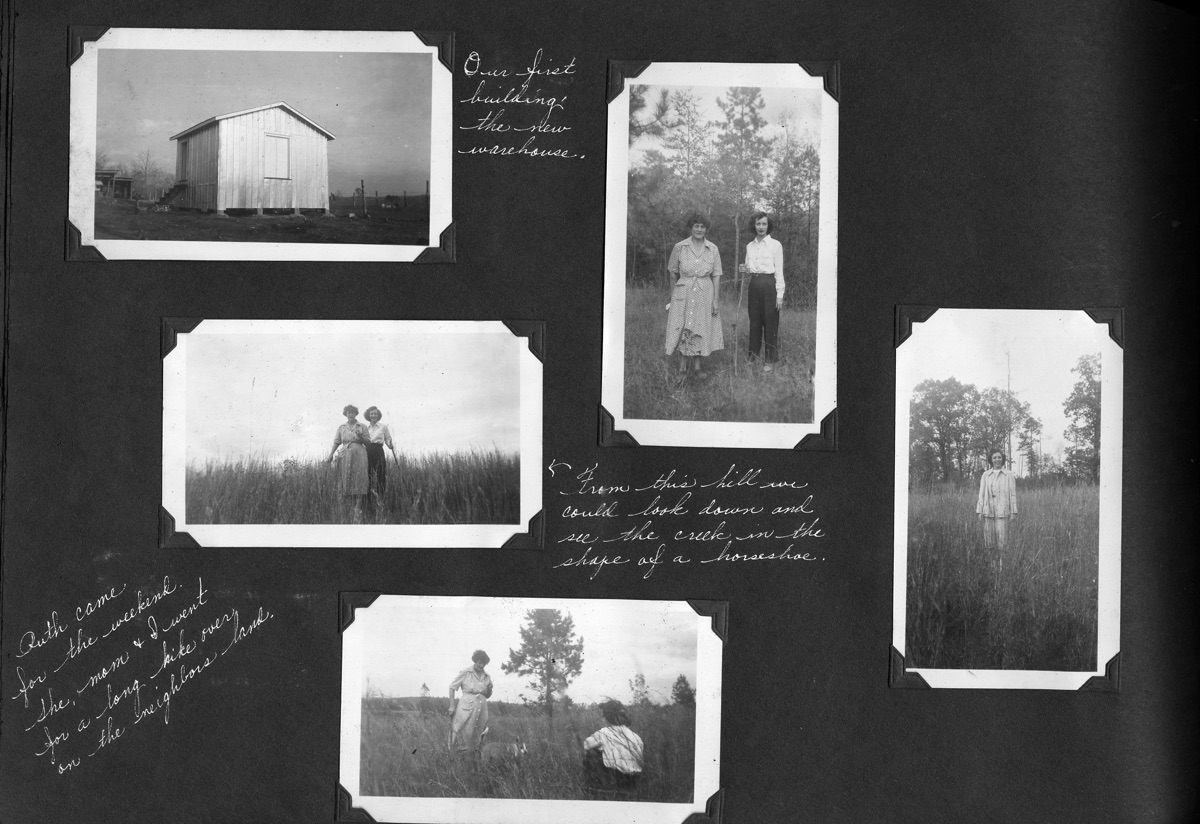 Our first
building,
the new
warehouse.
From this hill we
could look down and
see the creek in the
shape of a horseshoe.
Ruth came
for the weekend.
She, mom & I went
for a long hike over
on the neighbors land.